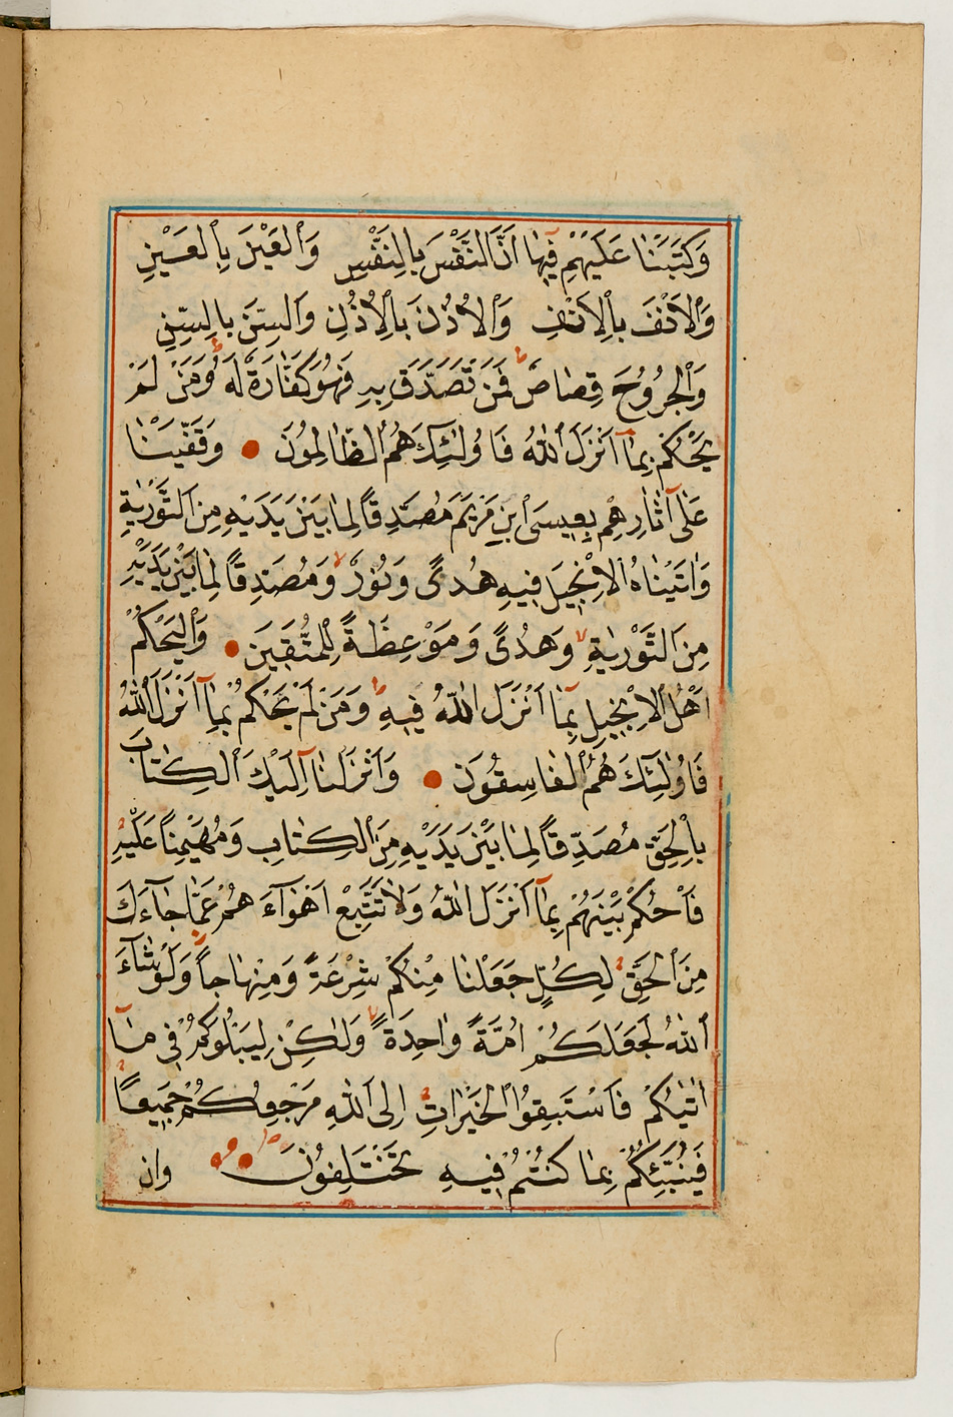 وَكَتَبْنَا عَلَيْهِمْ فِيهَا اَنَّ النَّفْسَ بِالنَّفْسِ وَالْعَيْنَ بِالْعَيْنِ
وَالْاَنْفَ بِالْاَنْفِ وَالْاُذُنَ بِالْاُذُنِ وَالسِّنَّ بِالسِّنِّ
وَالْجُرُوحَ قِصَاصٌ فَمَنْ تَصَدَّقَ بِهِ فَهُوَ كَفَّارَةٌ لَهُ وَمَنْ لَمْ
يَحْكُمْ بِمَآ اَنْزَلَ اللّٰهُ فَاُولٰئِكَ هُمُ الظَّالِمُونَ وَقَفَّيْنَا
عَلٰى آثَارِهِمْ بِعِيسَى ابْنِ مَرْيَمَ مُصَدِّقًا لِمَا بَيْنَ يَدَيْهِ مِنَ التَّوْرٰيةِ
وَاٰتَيْنَاهُ الْاِنْجِيلَ فِيهِ هُدًى وَنُورٌ وَمُصَدِّقًا لِمَا بَيْنَ يَدَيْهِ
مِنَ التَّوْرٰيةِ وَهُدًى وَمَوْعِظَةً لِلْمُتَّقِينَ وَالْيَحْكُمْ
اَهْلُ الْاِنْجِيلِ بِمَآ اَنْزَلَ اللّٰهُ فِيهِ وَمَنْ لَمْ يَحْكُمْ بِمَآ اَنْزَلَ اللّٰهُ
فَاُولٰئِكَ هُمُ الْفَاسِقُونَ وَاَنْزَلْنَآ اِلَيْكَ الْكِتَابَ
بِالْحَقِّ مُصَدِّقًا لِمَا بَيْنَ يَدَيْهِ مِنَ الْكِتَابِ وَمُهَيْمِنًا عَلَيْهِ
فَاحْكُمْ بَيْنَهُمْ بِمَآ اَنْزَلَ اللّٰهُ وَلَا تَتَّبِعْ اَهْوَآءَ هُمْ عَمَّا جَآءَكَ
مِنَ الْحَقِّ لِكُلٍّ جَعَلْنَا مِنْكُمْ شِرْعَةً وَمِنْهَاجًا وَلَوْ شَآءَ
اللّٰهُ لَجَعَلَكُمْ اُمَّةً وَاحِدَةً وَلٰكِنْ لِيَبْلُوَكُمْ فِي مَآ
اٰتٰيكُمْ فَاسْتَبِقُوا الْخَيْرَاتِ اِلَى اللّٰهِ مَرْجِعُكُمْ جَمِيعًا
فَيُنَبِّئُكُمْ بِمَا كُنْتُمْ فِيهِ تَخْتَلِفُونَ وان